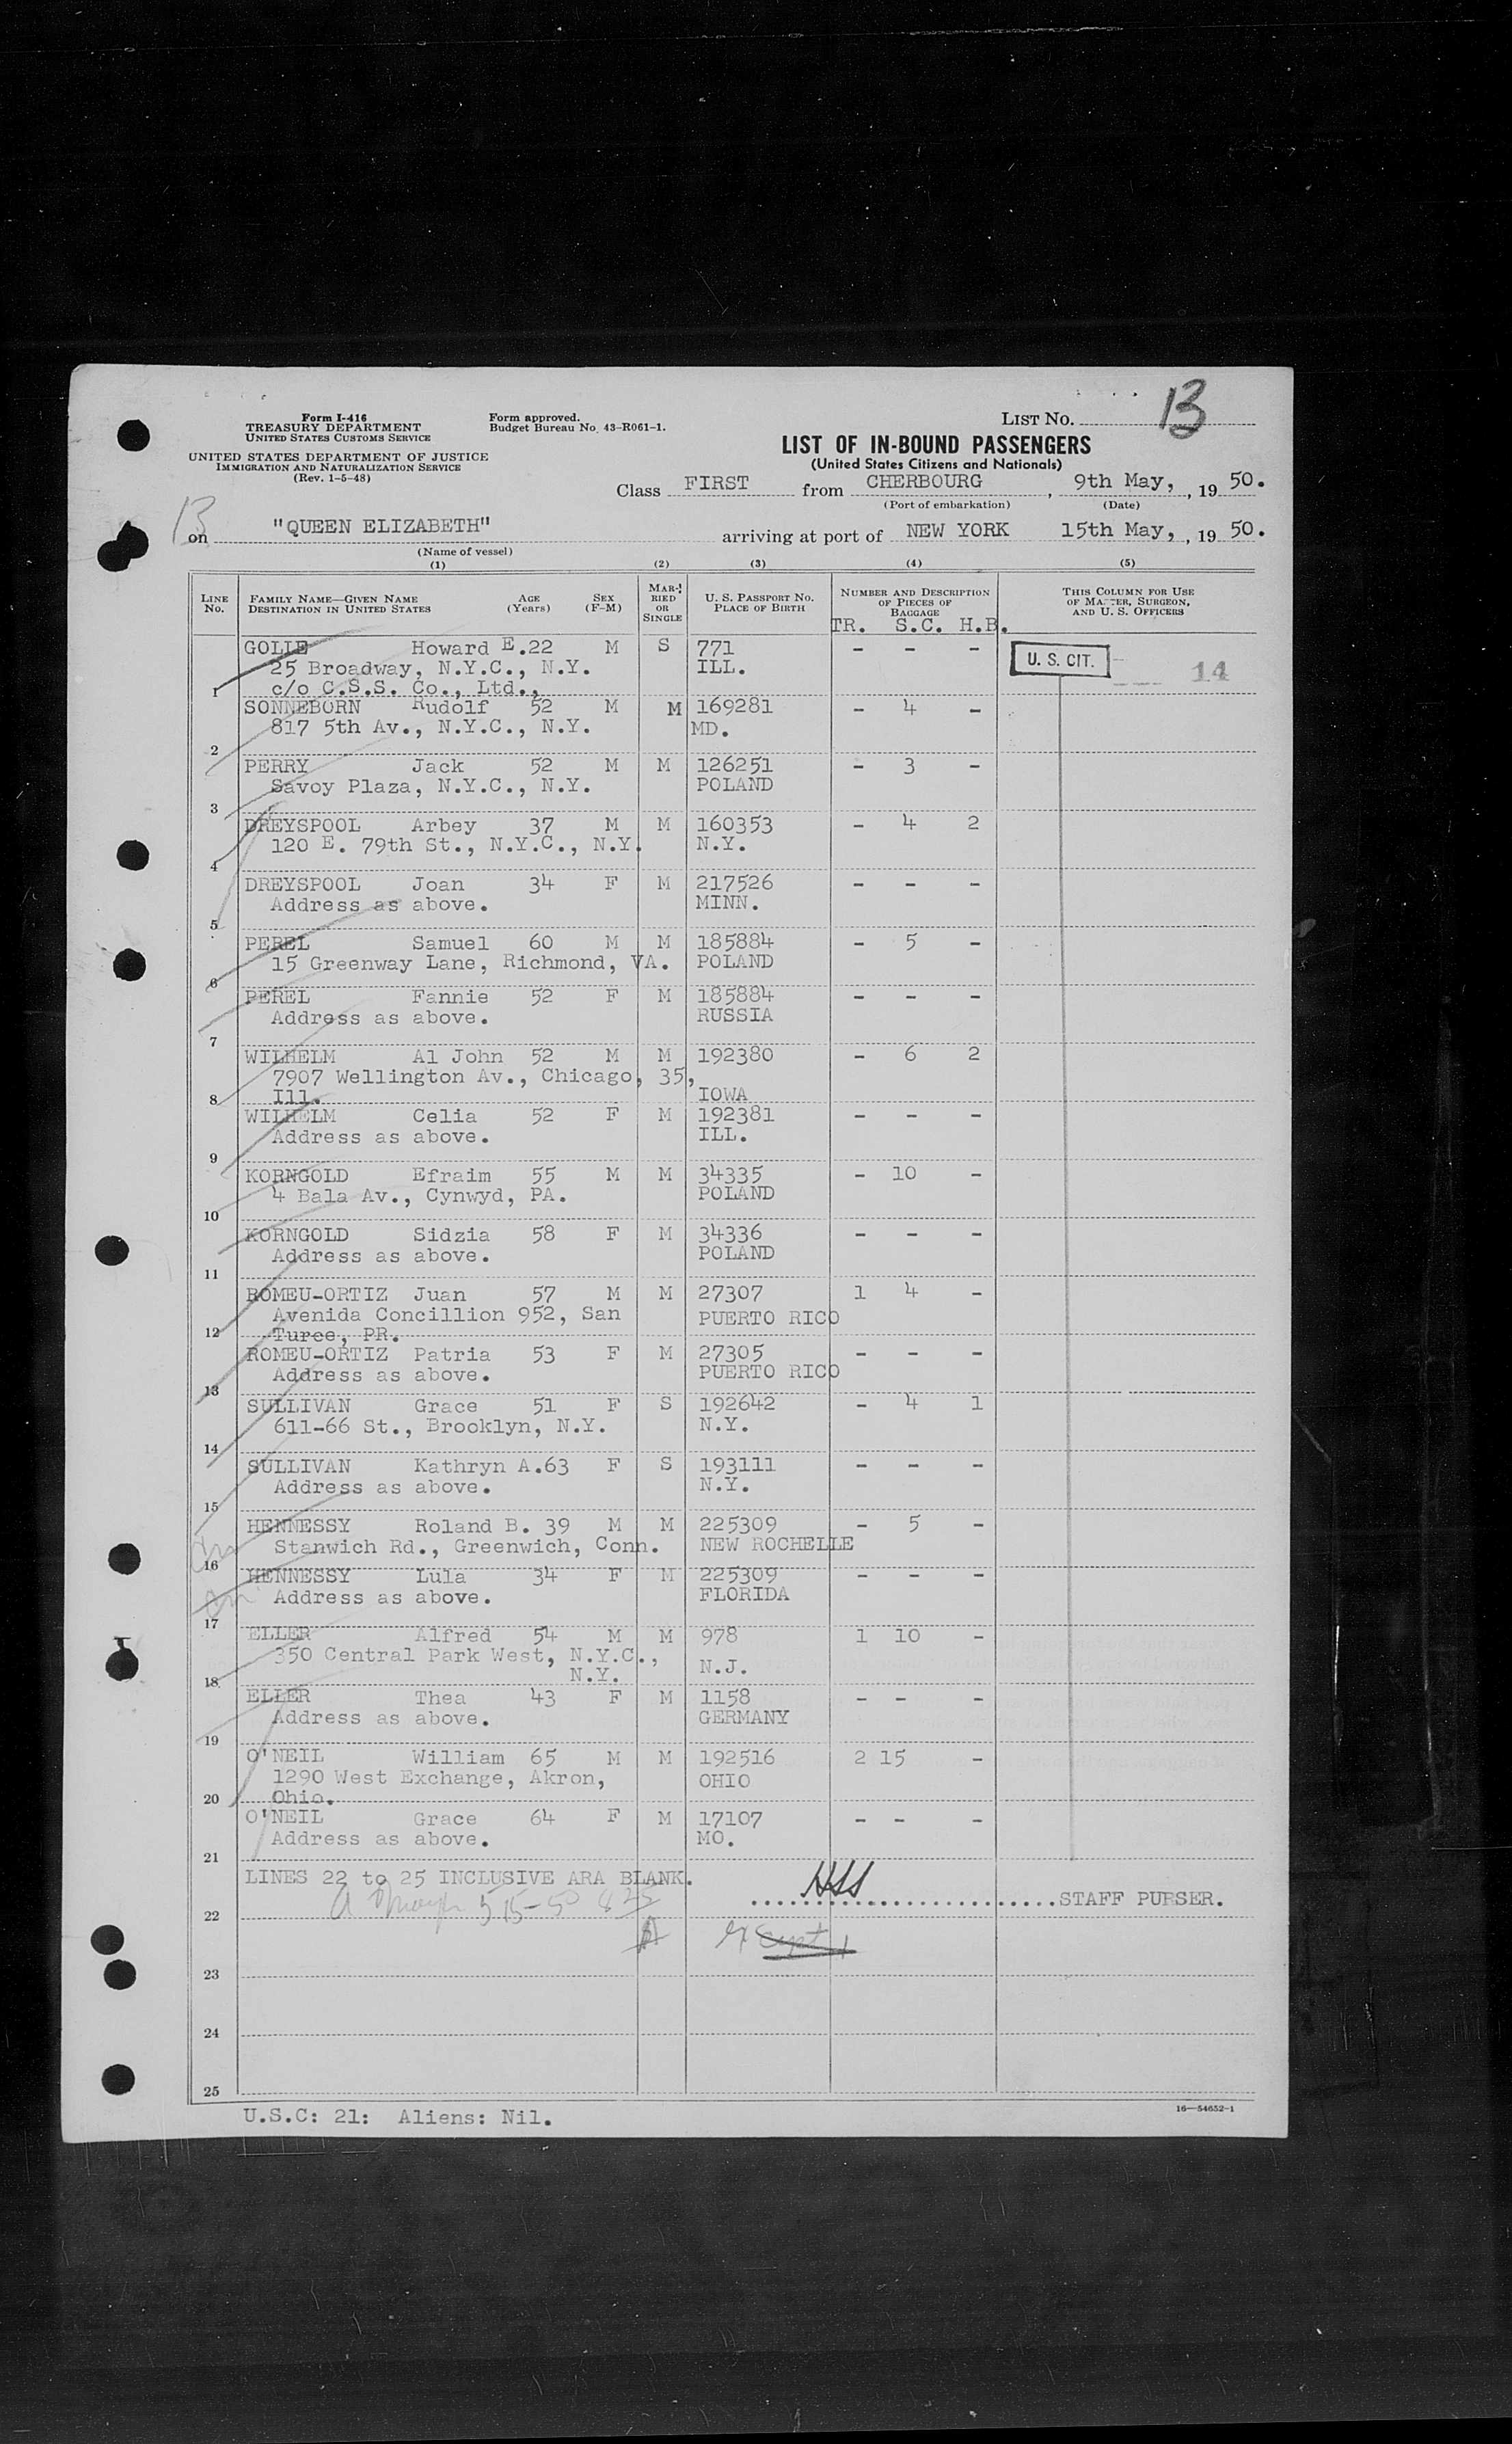 Form I-416
TREASURY DEPARTMENT
UNITED STATES CUSTOMS SERVICE
UNITED STATES DEPARTMENT OF JUSTICE
IMMIGRATION AND NATURALIZATION SERVICE
(Rev. 1-5-48)
Form approved.
Budget Bureau No. 43-R061-1.
LIST No. 13
LIST OF IN-BOUND PASSENGERS
(United States Citizens and Nationals)
Class FIRST from CHERBOURG, 9th May, , 19 50.
(Port of embarkation) (Date)
13
on "QUEEN ELIZABETH" arriving at port of NEW YORK 15th May, , 19 50.
(Name of vessel)
(1) (2) (3) (4) (5)
LINE No. FAMILY NAME—GIVEN NAME DESTINATION IN UNITED STATES AGE (Years) SEX (F-M) MARRIED OR SINGLE U. S. PASSPORT No. PLACE OF BIRTH NUMBER AND DESCRIPTION OF PIECES OF BAGGAGE THIS COLUMN FOR USE OF MASTER, SURGEON, AND U. S. OFFICERS
TR. S.C. H.B.
GOLIE Howard E.22 M S 771 - - - U. S. CIT. 14
25 Broadway, N.Y.C., N.Y. ILL.
1 c/o C.S.S. Co., Ltd.,
SONNEBORN Rudolf 52 M M 169281 - 4 -
817 5th Av., N.Y.C., N.Y. MD.
2
PERRY Jack 52 M M 126251 - 3 -
Savoy Plaza, N.Y.C., N.Y. POLAND
3
DREYSPOOL Arbey 37 M M 160353 - 4 2
120 E. 79th St., N.Y.C., N.Y. N.Y.
4
DREYSPOOL Joan 34 F M 217526 - - -
Address as above. MINN.
5
PEREL Samuel 60 M M 185884 - 5 -
15 Greenway Lane, Richmond, VA. POLAND
6
PEREL Fannie 52 F M 185884 - - -
Address as above. RUSSIA
7
WILHELM Al John 52 M M 192380 - 6 2
7907 Wellington Av., Chicago, 35,
8 Ill. IOWA
WILHELM Celia 52 F M 192381 - - -
Address as above. ILL.
9
KORNGOLD Efraim 55 M M 34335 - 10 -
4 Bala Av., Cynwyd, PA. POLAND
10
KORNGOLD Sidzia 58 F M 34336 - - -
Address as above. POLAND
11
ROMEU-ORTIZ Juan 57 M M 27307 1 4 -
Avenida Concillion 952, San PUERTO RICO
12 Turce, PR.
ROMEU-ORTIZ Patria 53 F M 27305 - - -
Address as above. PUERTO RICO
13
SULLIVAN Grace 51 F S 192642 - 4 1
611-66 St., Brooklyn, N.Y. N.Y.
14
SULLIVAN Kathryn A.63 F S 193111 - - -
Address as above. N.Y.
15
HENNESSY Roland B. 39 M M 225309 - 5 -
Stanwich Rd., Greenwich, Conn. NEW ROCHELLE
16
HENNESSY Lula 34 F M 225309 - - -
Address as above. FLORIDA
17
ELLER Alfred 54 M M 978 1 10 -
350 Central Park West, N.Y.C., N.J.
18 N.Y.
ELLER Thea 43 F M 1158 - - -
Address as above. GERMANY
19
O'NEIL William 65 M M 192516 2 15 -
1290 West Exchange, Akron, OHIO
20 Ohio.
O'NEIL Grace 64 F M 17107 - - -
Address as above. MO.
21
LINES 22 to 25 INCLUSIVE ARA BLANK.
STAFF PURSER.
22
23
24
25
U.S.C: 21: Aliens: Nil.
16—54652-1